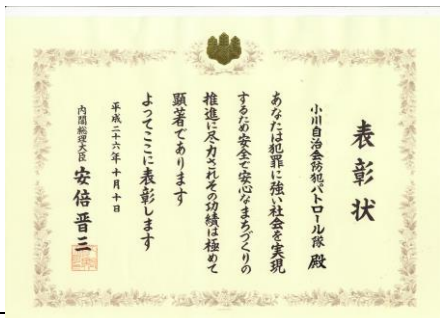 表彰状
小川自治会防犯パトロール隊 殿
あなたは犯罪に強い社会を実現
するため安全で安心なまちづくりの
推進に尽力されその功績は極めて
顕著であります
よってここに表彰します
平成二十六年十月十日
内閣総理大臣 安倍晋三